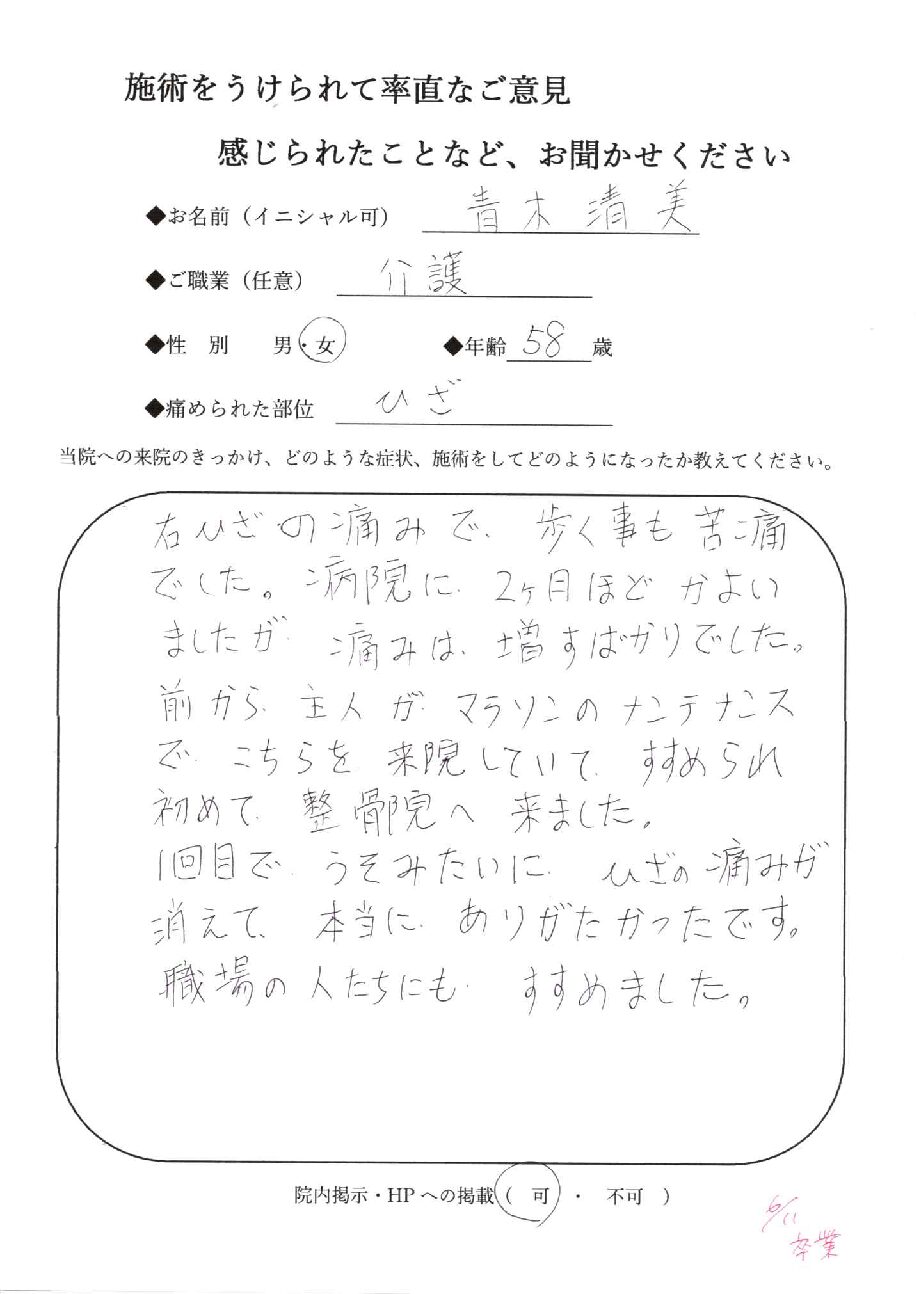 施術をうけられて率直なご意見
感じられたことなど、お聞かせください
◆お名前（イニシャル可） 青木清美
◆ご職業（任意） 介護
◆性　別　男・女　◆年齢 58 歳
◆痛められた部位 ひざ
当院への来院のきっかけ、どのような症状、施術をしてどのようになったか教えてください。
右ひざの痛みで、歩く事も苦痛
でした。病院に、2ヶ月ほどかよい
ましたが、痛みは、増すばかりでした。
前から、主人が、マラソンのメンテナンス
で、こちらを来院していて、すすめられ
初めて、整骨院へ来ました。
1回目で、うそみたいに、ひざの痛みが
消えて、本当に、ありがたかったです。
職場の人たちにも、すすめました。
院内掲示・HPへの掲載（ 可 ・ 不可 ）
6/11
卒業